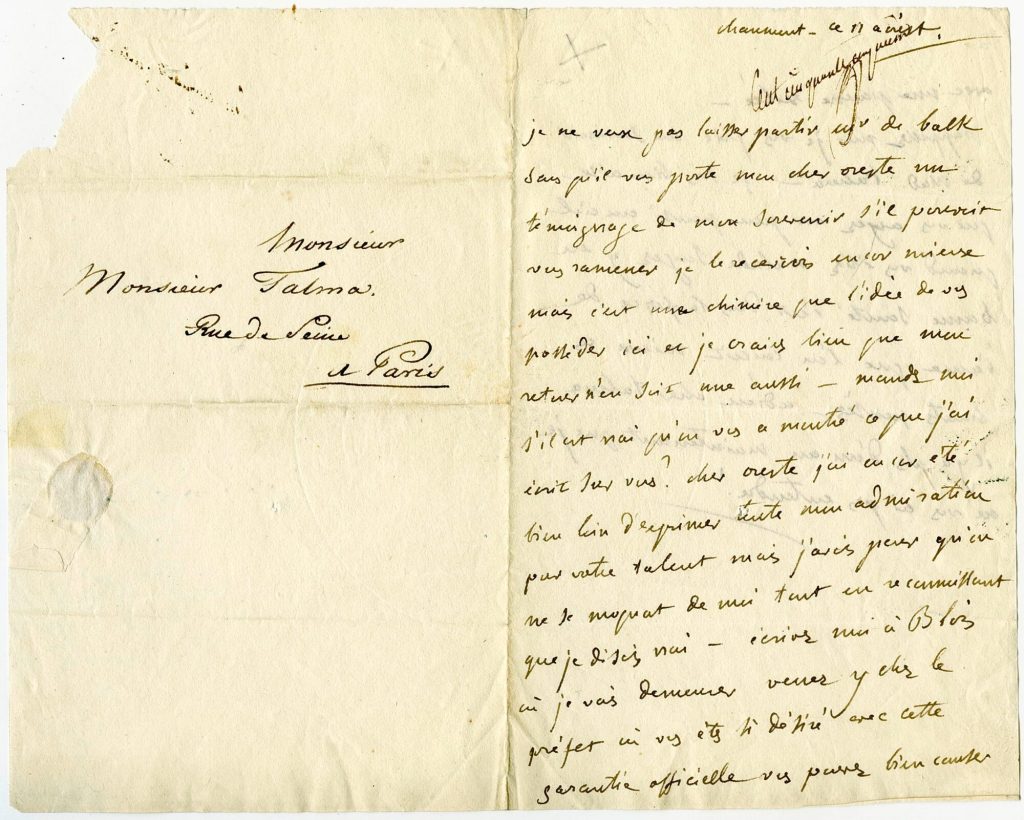 Monsieur
Monsieur Talma.
Rue de Seine
a Paris
chaumont - ce 11 aoust.
Cent cinquante cinq
je ne veux pas laisser partir mr de balk
sans qu'il vous porte mon cher oreste un
témoignage de mon souvenir s'il pouvoit
vous ramener je le recevrois encor mieux
mais c'est une chimère que l'idée de vous
posséder ici et je crains bien que mon
retour n'en soit une aussi - mandez moi
s'il est vrai qu'on vous a montré ce que j'ai
écrit sur vous? cher oreste j'ai encor été
bien loin d'exprimer toute mon admiration
pour votre talent mais j'avois peur qu'on
ne se moquat de moi tout en reconnoissant
que je disois vrai - écrivez moi à Blois
où je vais demeurer venez y chez le
préfet où vous êtes si désiré avec cette
garantie officielle vous pouvez bien causer